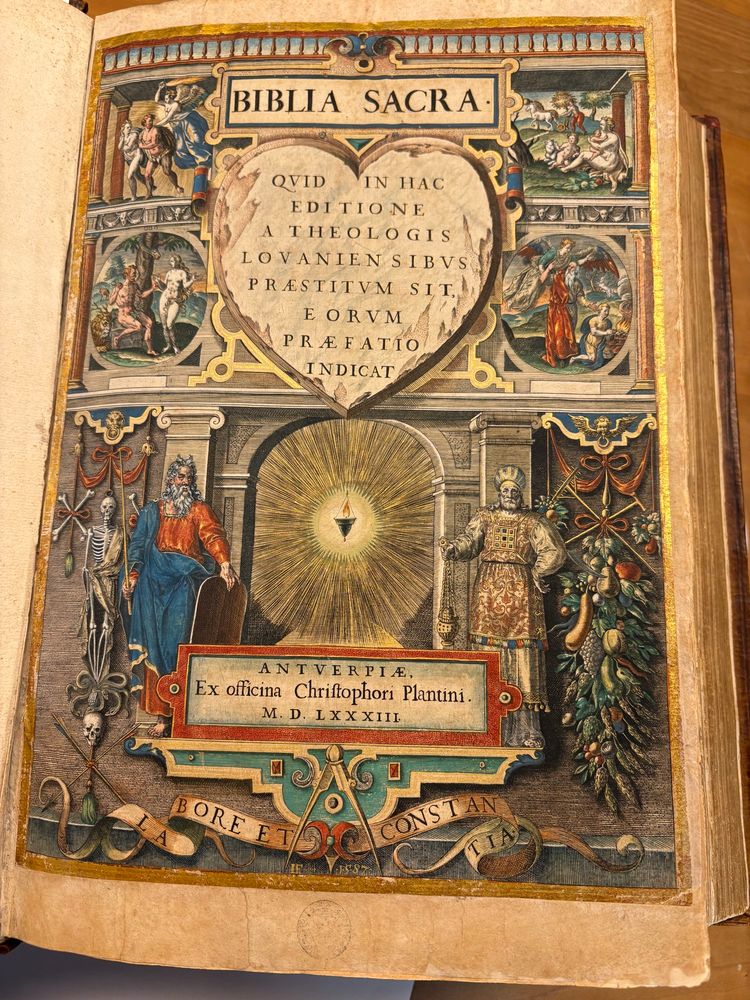 BIBLIA SACRA.
QVID IN HAC
EDITIONE
A THEOLOGIS
LOVANIENSIBVS
PRÆSTITVM SIT,
EORVM
PRÆFATIO
INDICAT
ANTVERPIÆ,
Ex officina Chriſtophori Plantini.
M. D. LXXXIII.
LABORE ET CONSTANTIA